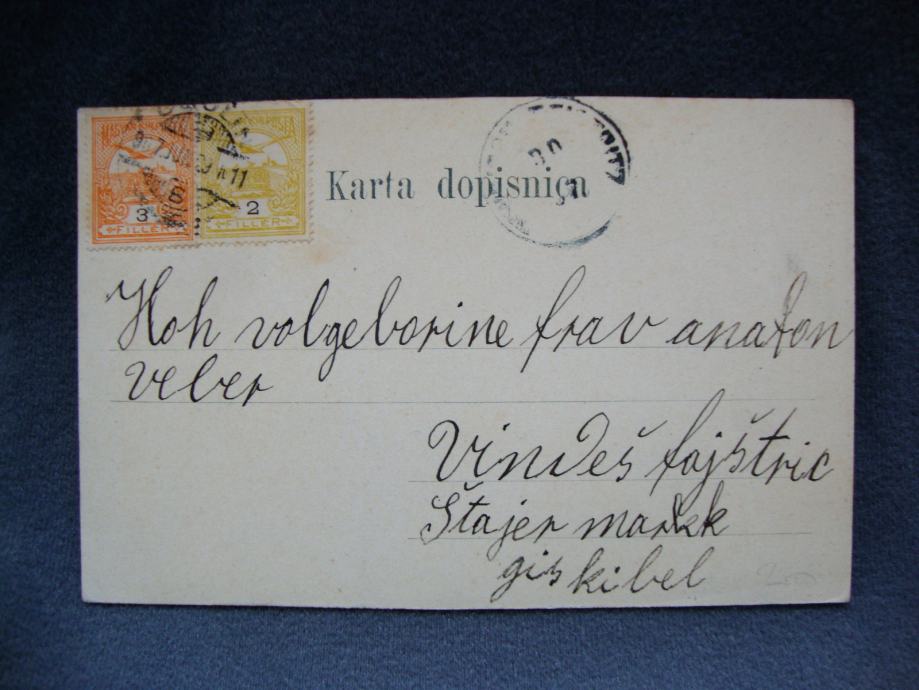 3
FILLER
2
FILLER
Karta dopisnica
Hoh volgeborine frav anaton
veber
Vindeš fajštric
Štajer mark
gis kibel